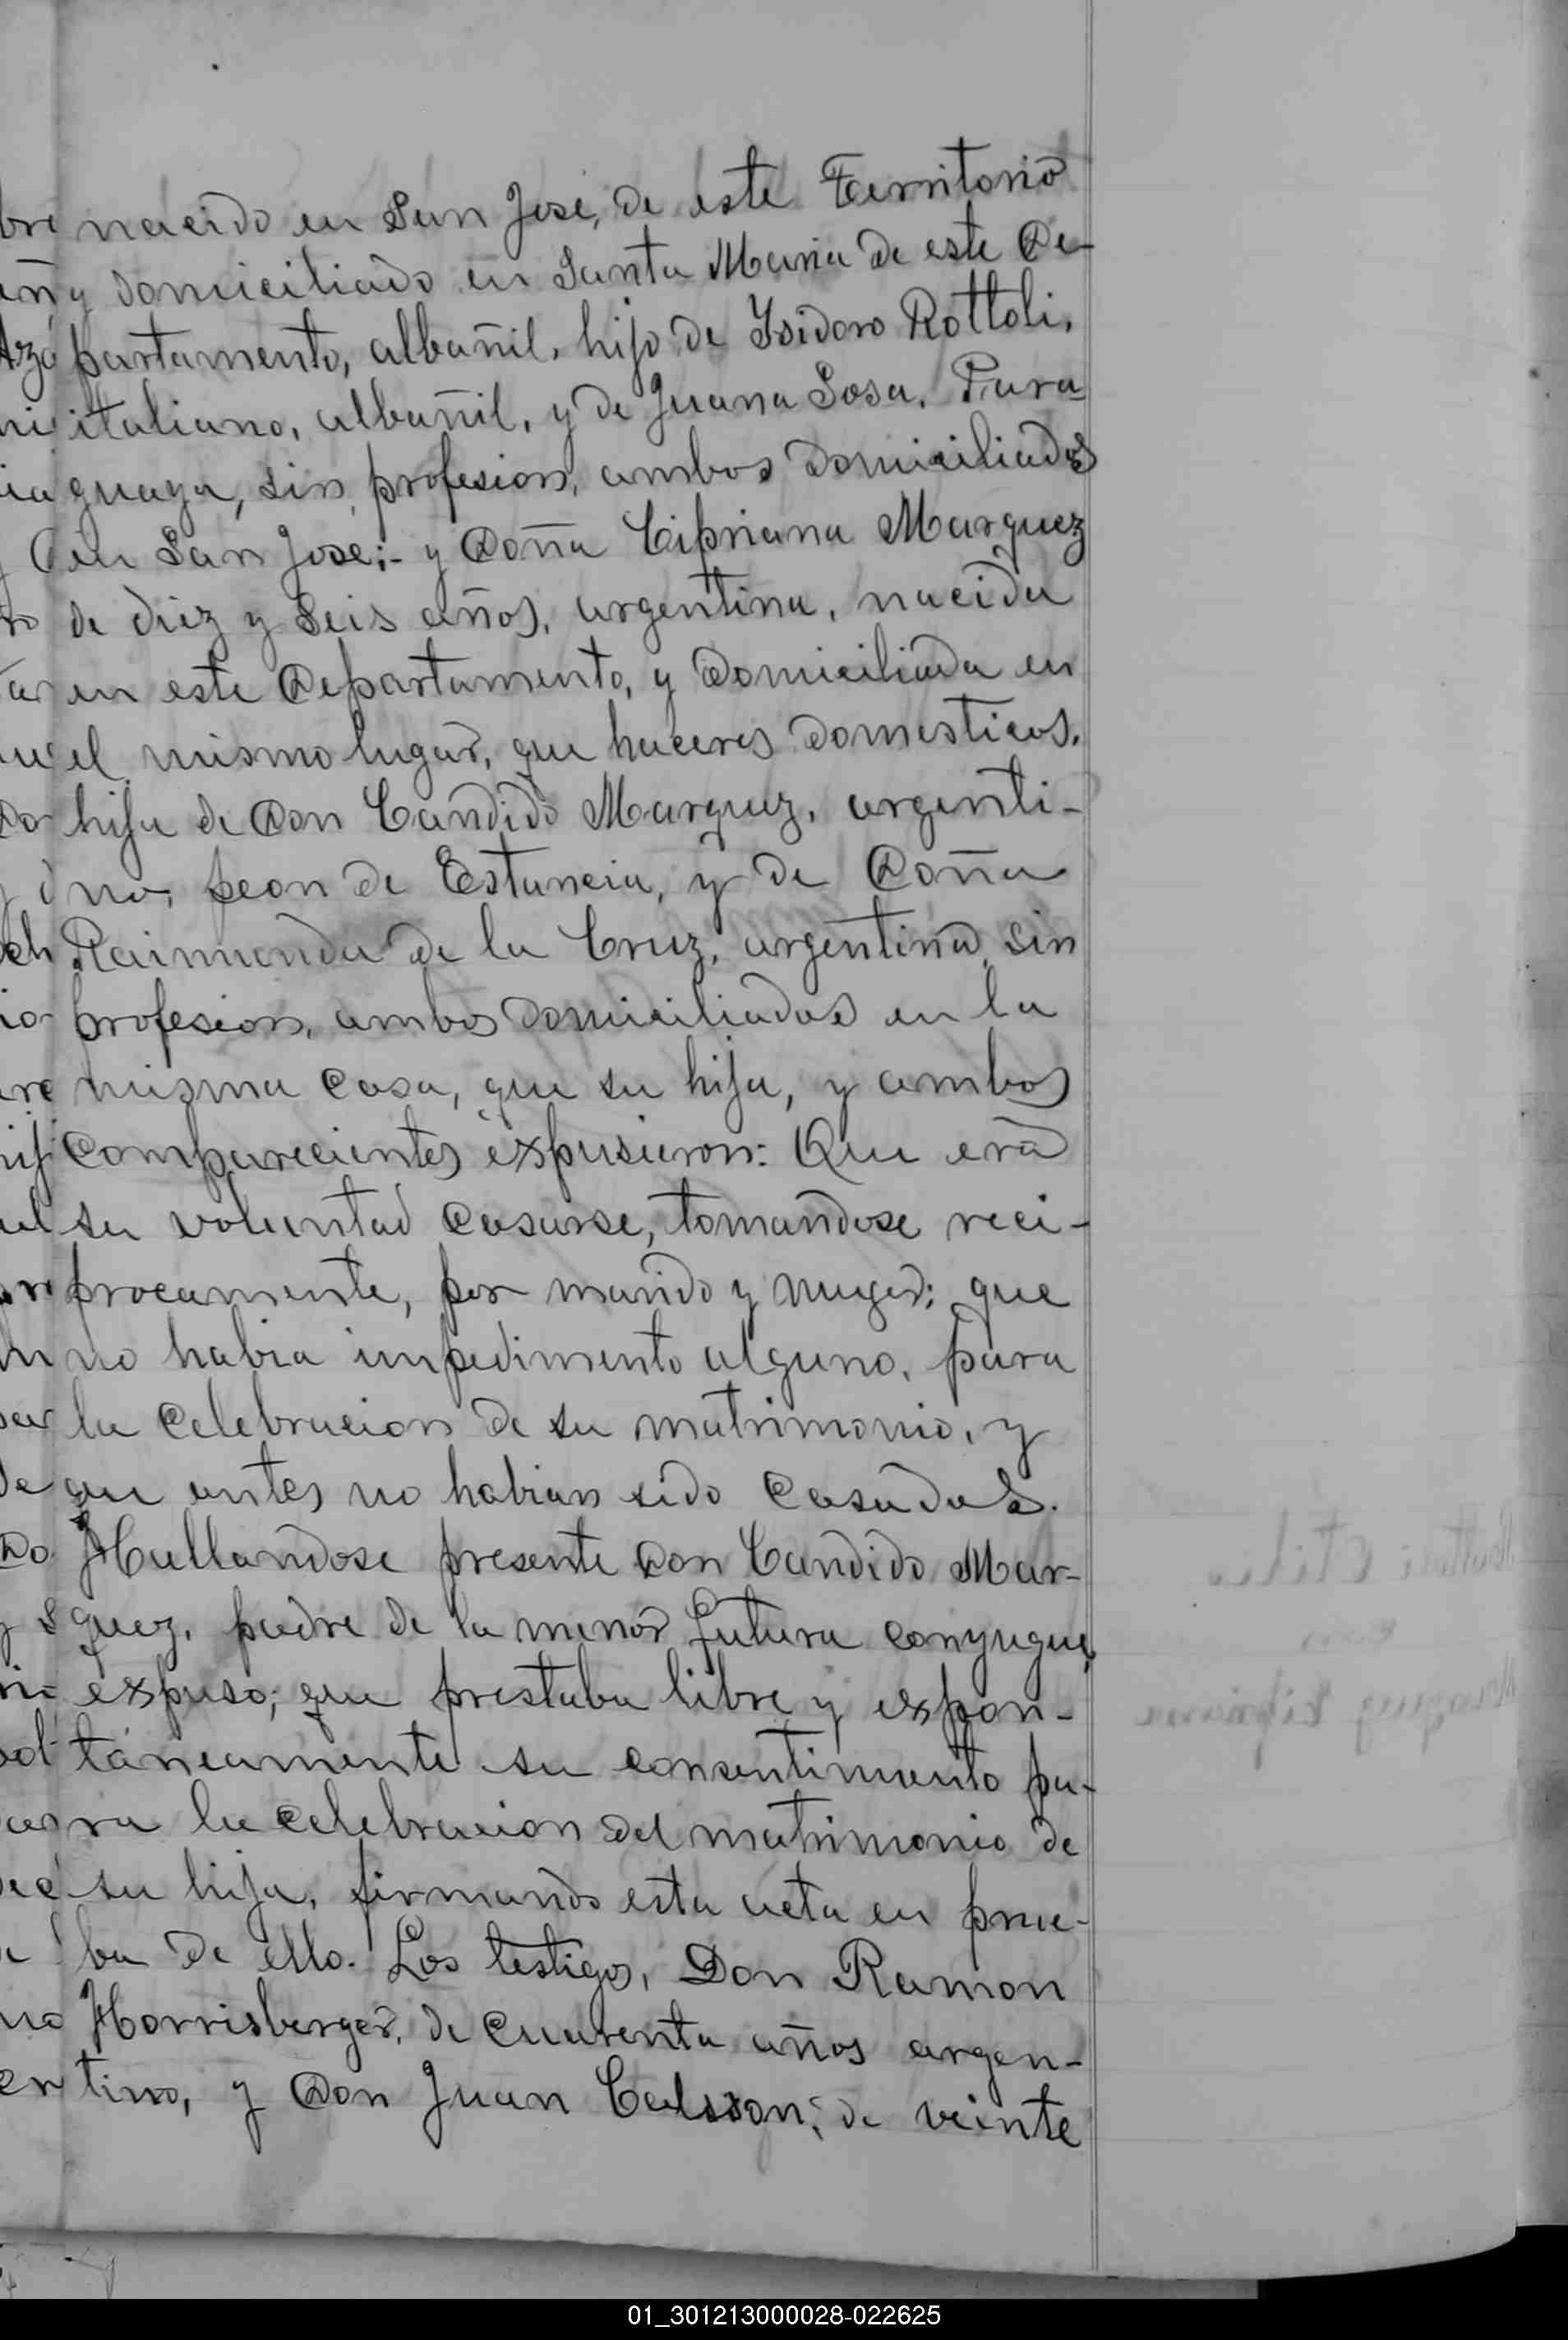 nacido en San José, de este Territorio
y domiciliado en Santa Maria de este De-
partamento, albañil, hijo de Ysidoro Rottoli,
italiano, albañil, y de Juana Sosa, Para-
guaya, sin profesion, ambos domiciliados
en San José; - y Doña Cipriana Marquez
de diez y seis años, argentina, nacida
en este Departamento, y domiciliada en
el mismo lugar, que haceres domesticos,
hija de Don Candido Marquez, argenti-
no, peon de Estancia, y de Doña
Raimunda de la Cruz, argentina, sin
profesion, ambos domiciliados en la
misma casa, que su hija, y ambos
comparecientes expusieron: Que era
su voluntad casarse, tomandose reci-
procamente, por marido y muger; que
no habia impedimento alguno, para
la celebracion de su matrimonio, y
que antes no habian sido casados.
Hallandose presente Don Candido Mar-
quez, padre de la menor futura conyugue,
expuso; que prestaba libre y expon-
taneamente su consentimiento pa-
ra la celebracion del matrimonio de
su hija, firmando esta acta en prue-
ba de ello. Los testigos, Don Ramon
Horrisberger, de cuarenta años argen-
tino, y Don Juan de veinte
01_301213000028-022625